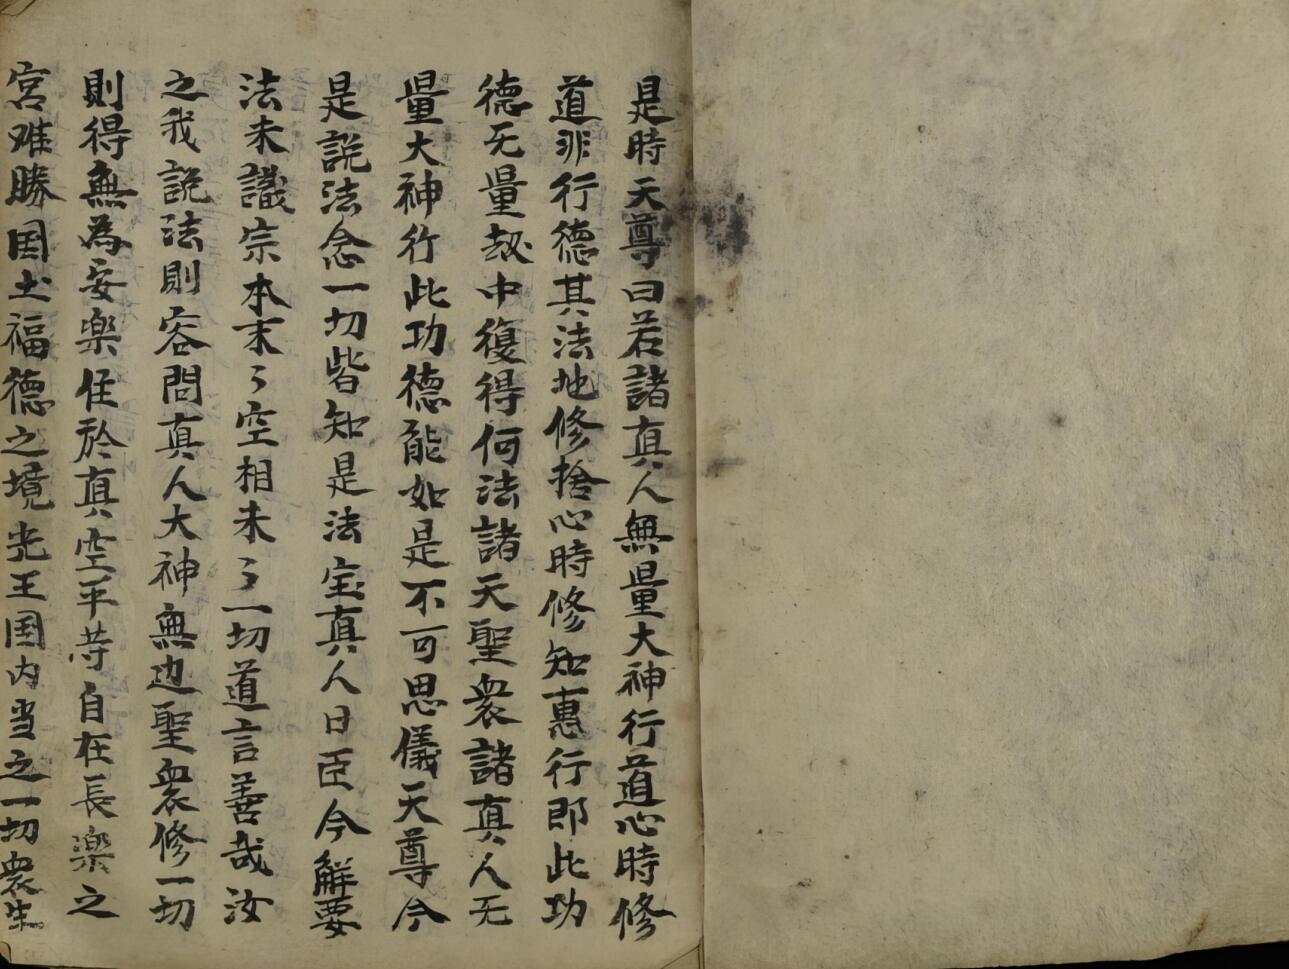 是時天尊曰若諸真人無量大神行道心時修
道非行德其法地修捨心時修知惠行即此功
德无量劫中復得何法諸天聖衆諸真人无
量大神行此功德能如是不可思儀天尊今
是說法念一切皆知是法宝真人日臣今解要
法未識宗本末〻空相未〻一切道言善哉汝
之我説法則容問真人大神無边聖衆修一切
則得無為安楽住於真空平䒭自在長楽之
宮难勝国土福德之境光王国内当之一切衆生